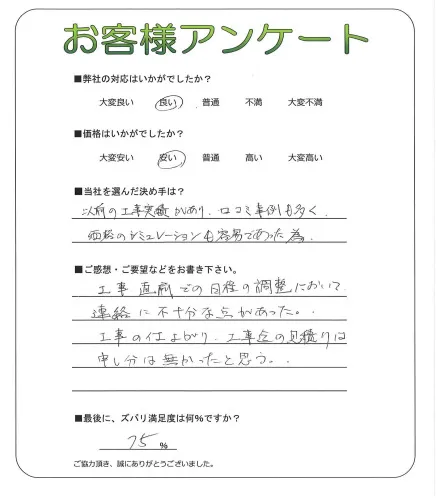 お客様アンケート
■弊社の対応はいかがでしたか？
大変良い 良い 普通 不満 大変不満
■価格はいかがでしたか？
大変安い 安い 普通 高い 大変高い
■当社を選んだ決め手は？
以前の工事実績があり、口コミ事例も多く、
価格のシミュレーションも容易であった為、
■ご感想・ご要望などをお書き下さい。
工事直前での日程の調整において
連絡に不十分な点があった。
工事の仕上がり、工事金の見積りは
申し分は無かったと思う。
■最後に、ズバリ満足度は何％ですか？
75 %
ご協力頂き、誠にありがとうございました。